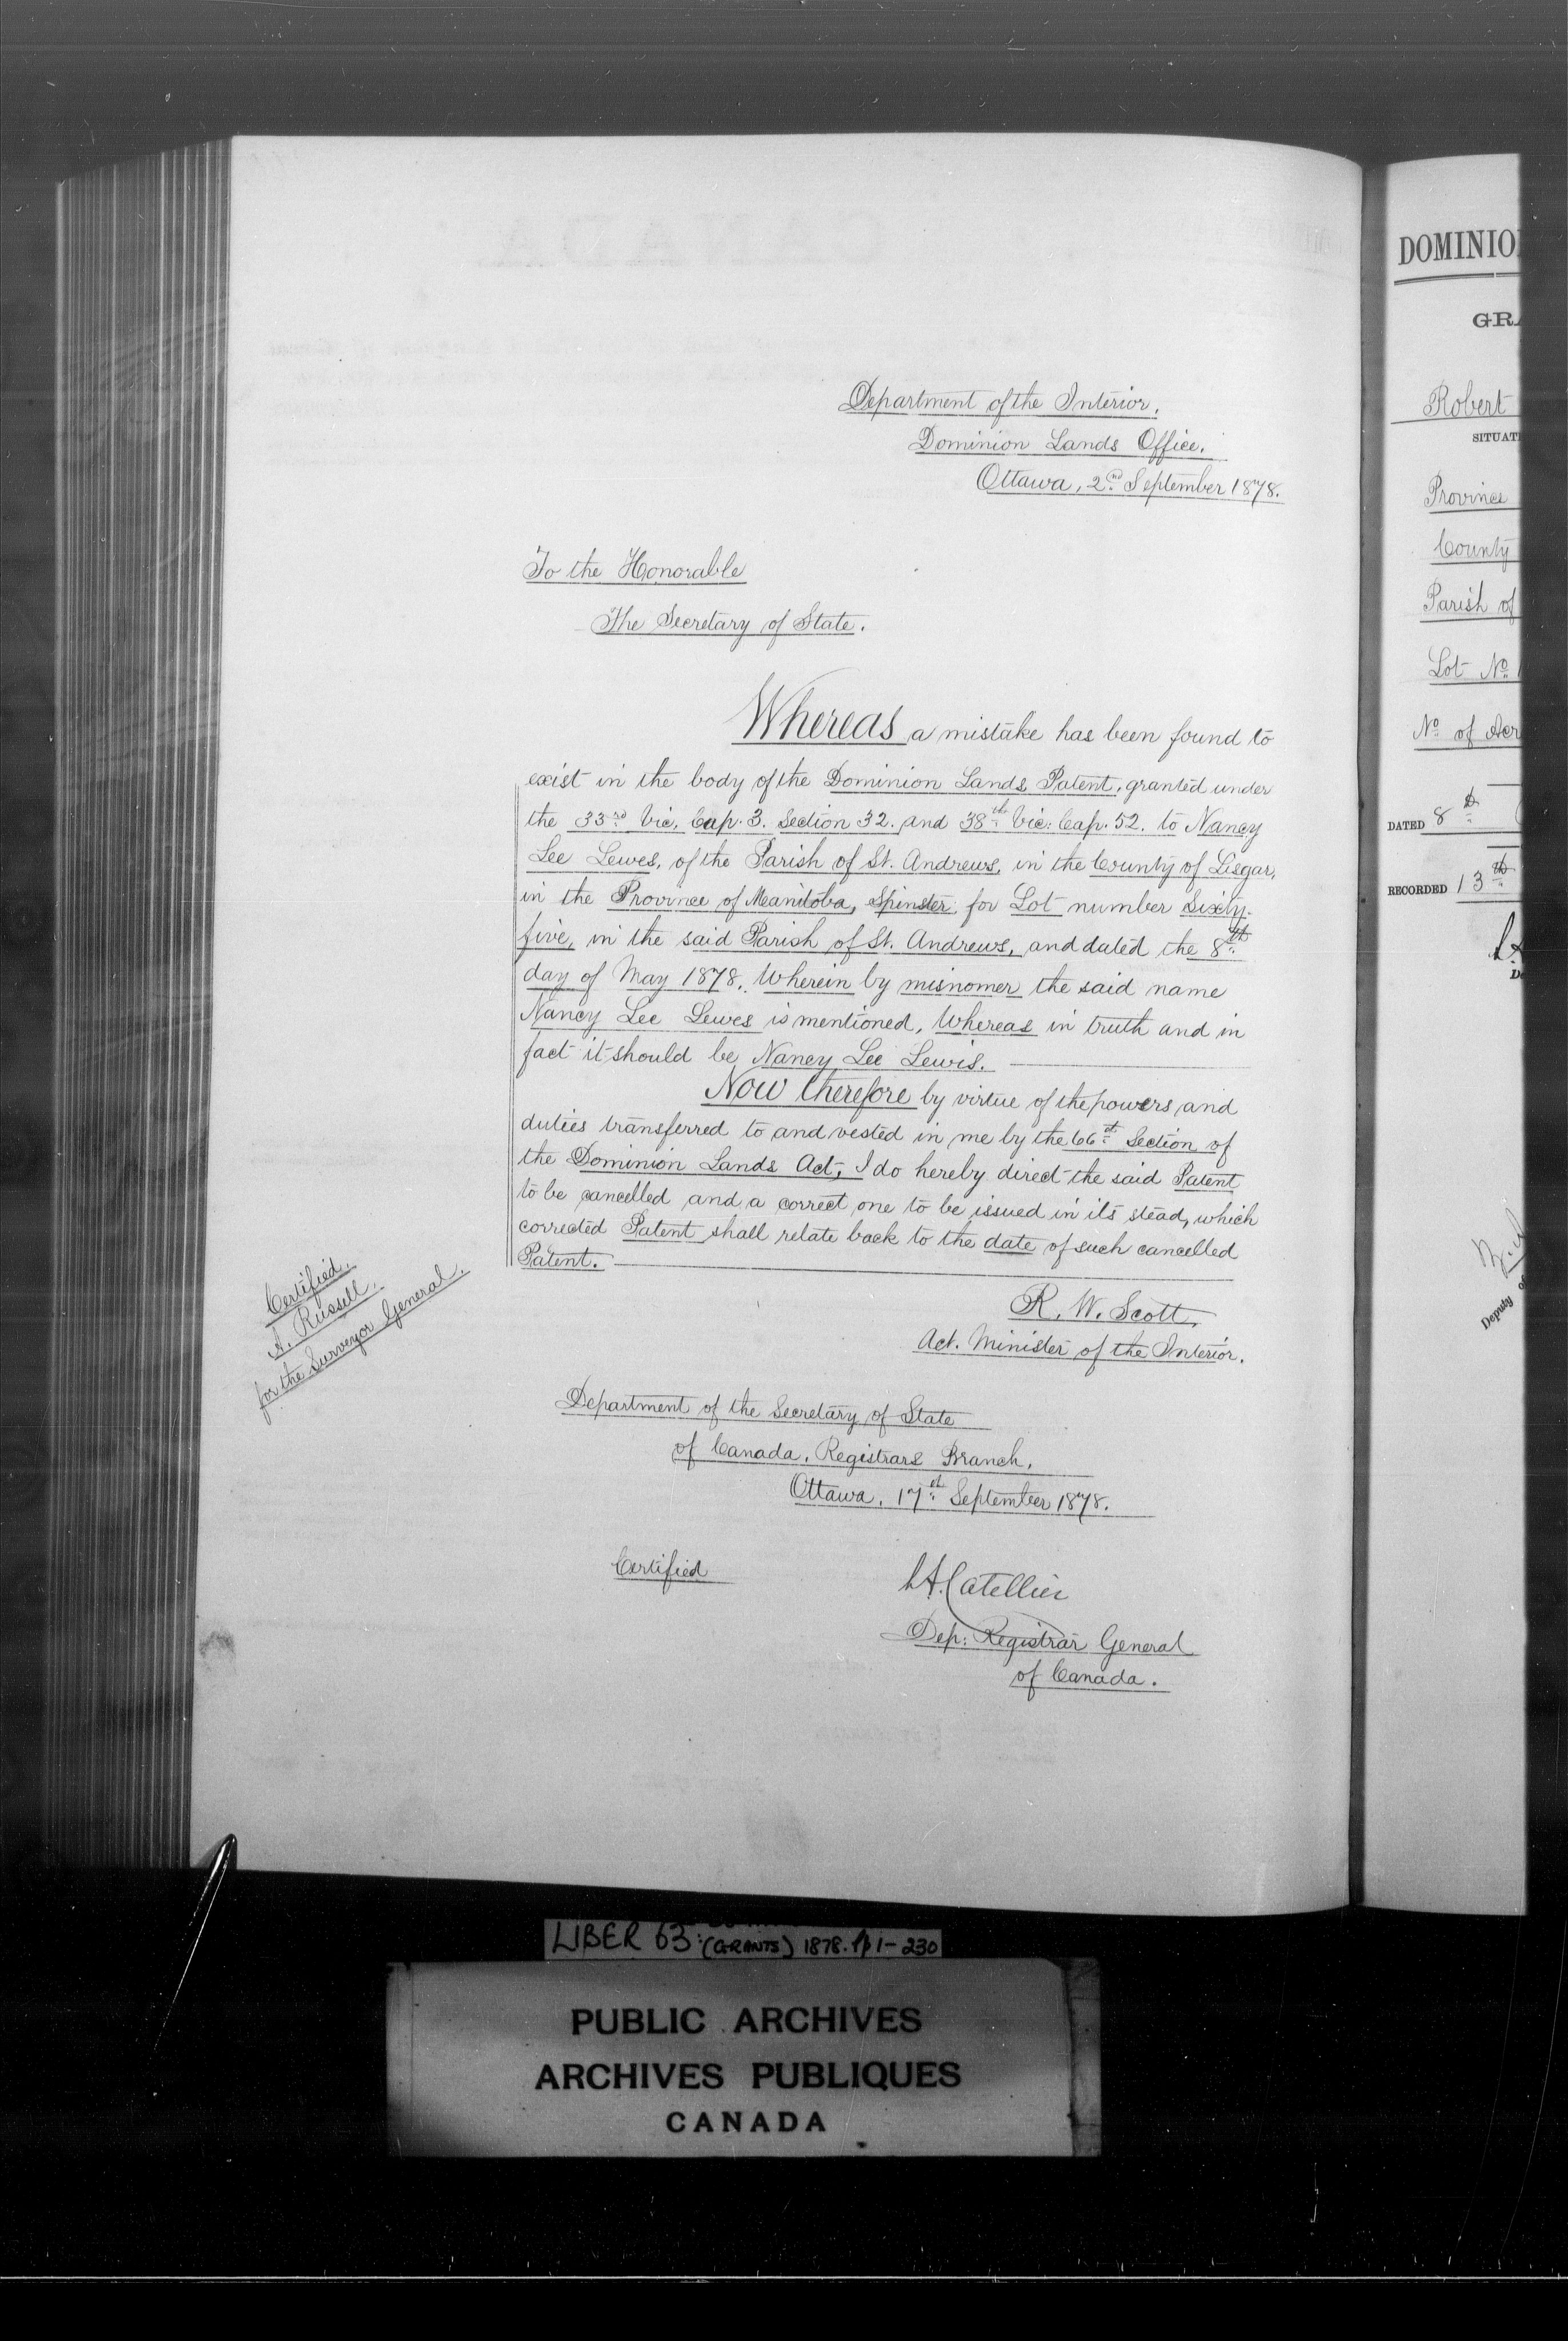 Department of the Interior,
Dominion Lands Office,
Ottawa, 2nd September 1878.
To the Honorable
The Secretary of State.
Whereas a mistake has been found to
exist in the body of the Dominion Lands Patent, granted under
the 33rd Vic, Cap. 3. Section 32. and 38th Vic: Cap. 52. to Nancy
Lee Lewes, of the Parish of St. Andrews, in the County of Lisgar,
in the Province of Manitoba, Spinster, for Lot number Sixty-
five, in the said Parish of St. Andrews, and dated the 8th
day of May 1878. Wherein by misnomer the said name
Nancy Lee Lewes is mentioned, Whereas in truth and in
fact it should be Nancy Lee Lewis.
Now therefore by virtue of the powers and
duties transferred to and vested in me by the 66th Section of
the Dominion Lands Act, I do hereby direct the said Patent
to be cancelled and a correct one to be issued in its stead, which
corrected Patent shall relate back to the date of such cancelled
Patent.
Certified.
A. Russell.
for the Surveyor General.
R. W. Scott,
Act. Minister of the Interior.
Department of the Secretary of State
of Canada, Registrars Branch,
Ottawa, 17th September 1878.
Certified
LA Catellier
Dep: Registrar General
of Canada.
DOMINIO
GRA
Robert
SITUAT
Province
County
Parish of
Lot No 1
No of Acr
DATED 8th
RECORDED 13th
Deputy
LIBER 63: (GRANTS) 1878. pp 1-230
PUBLIC ARCHIVES
ARCHIVES PUBLIQUES
CANADA